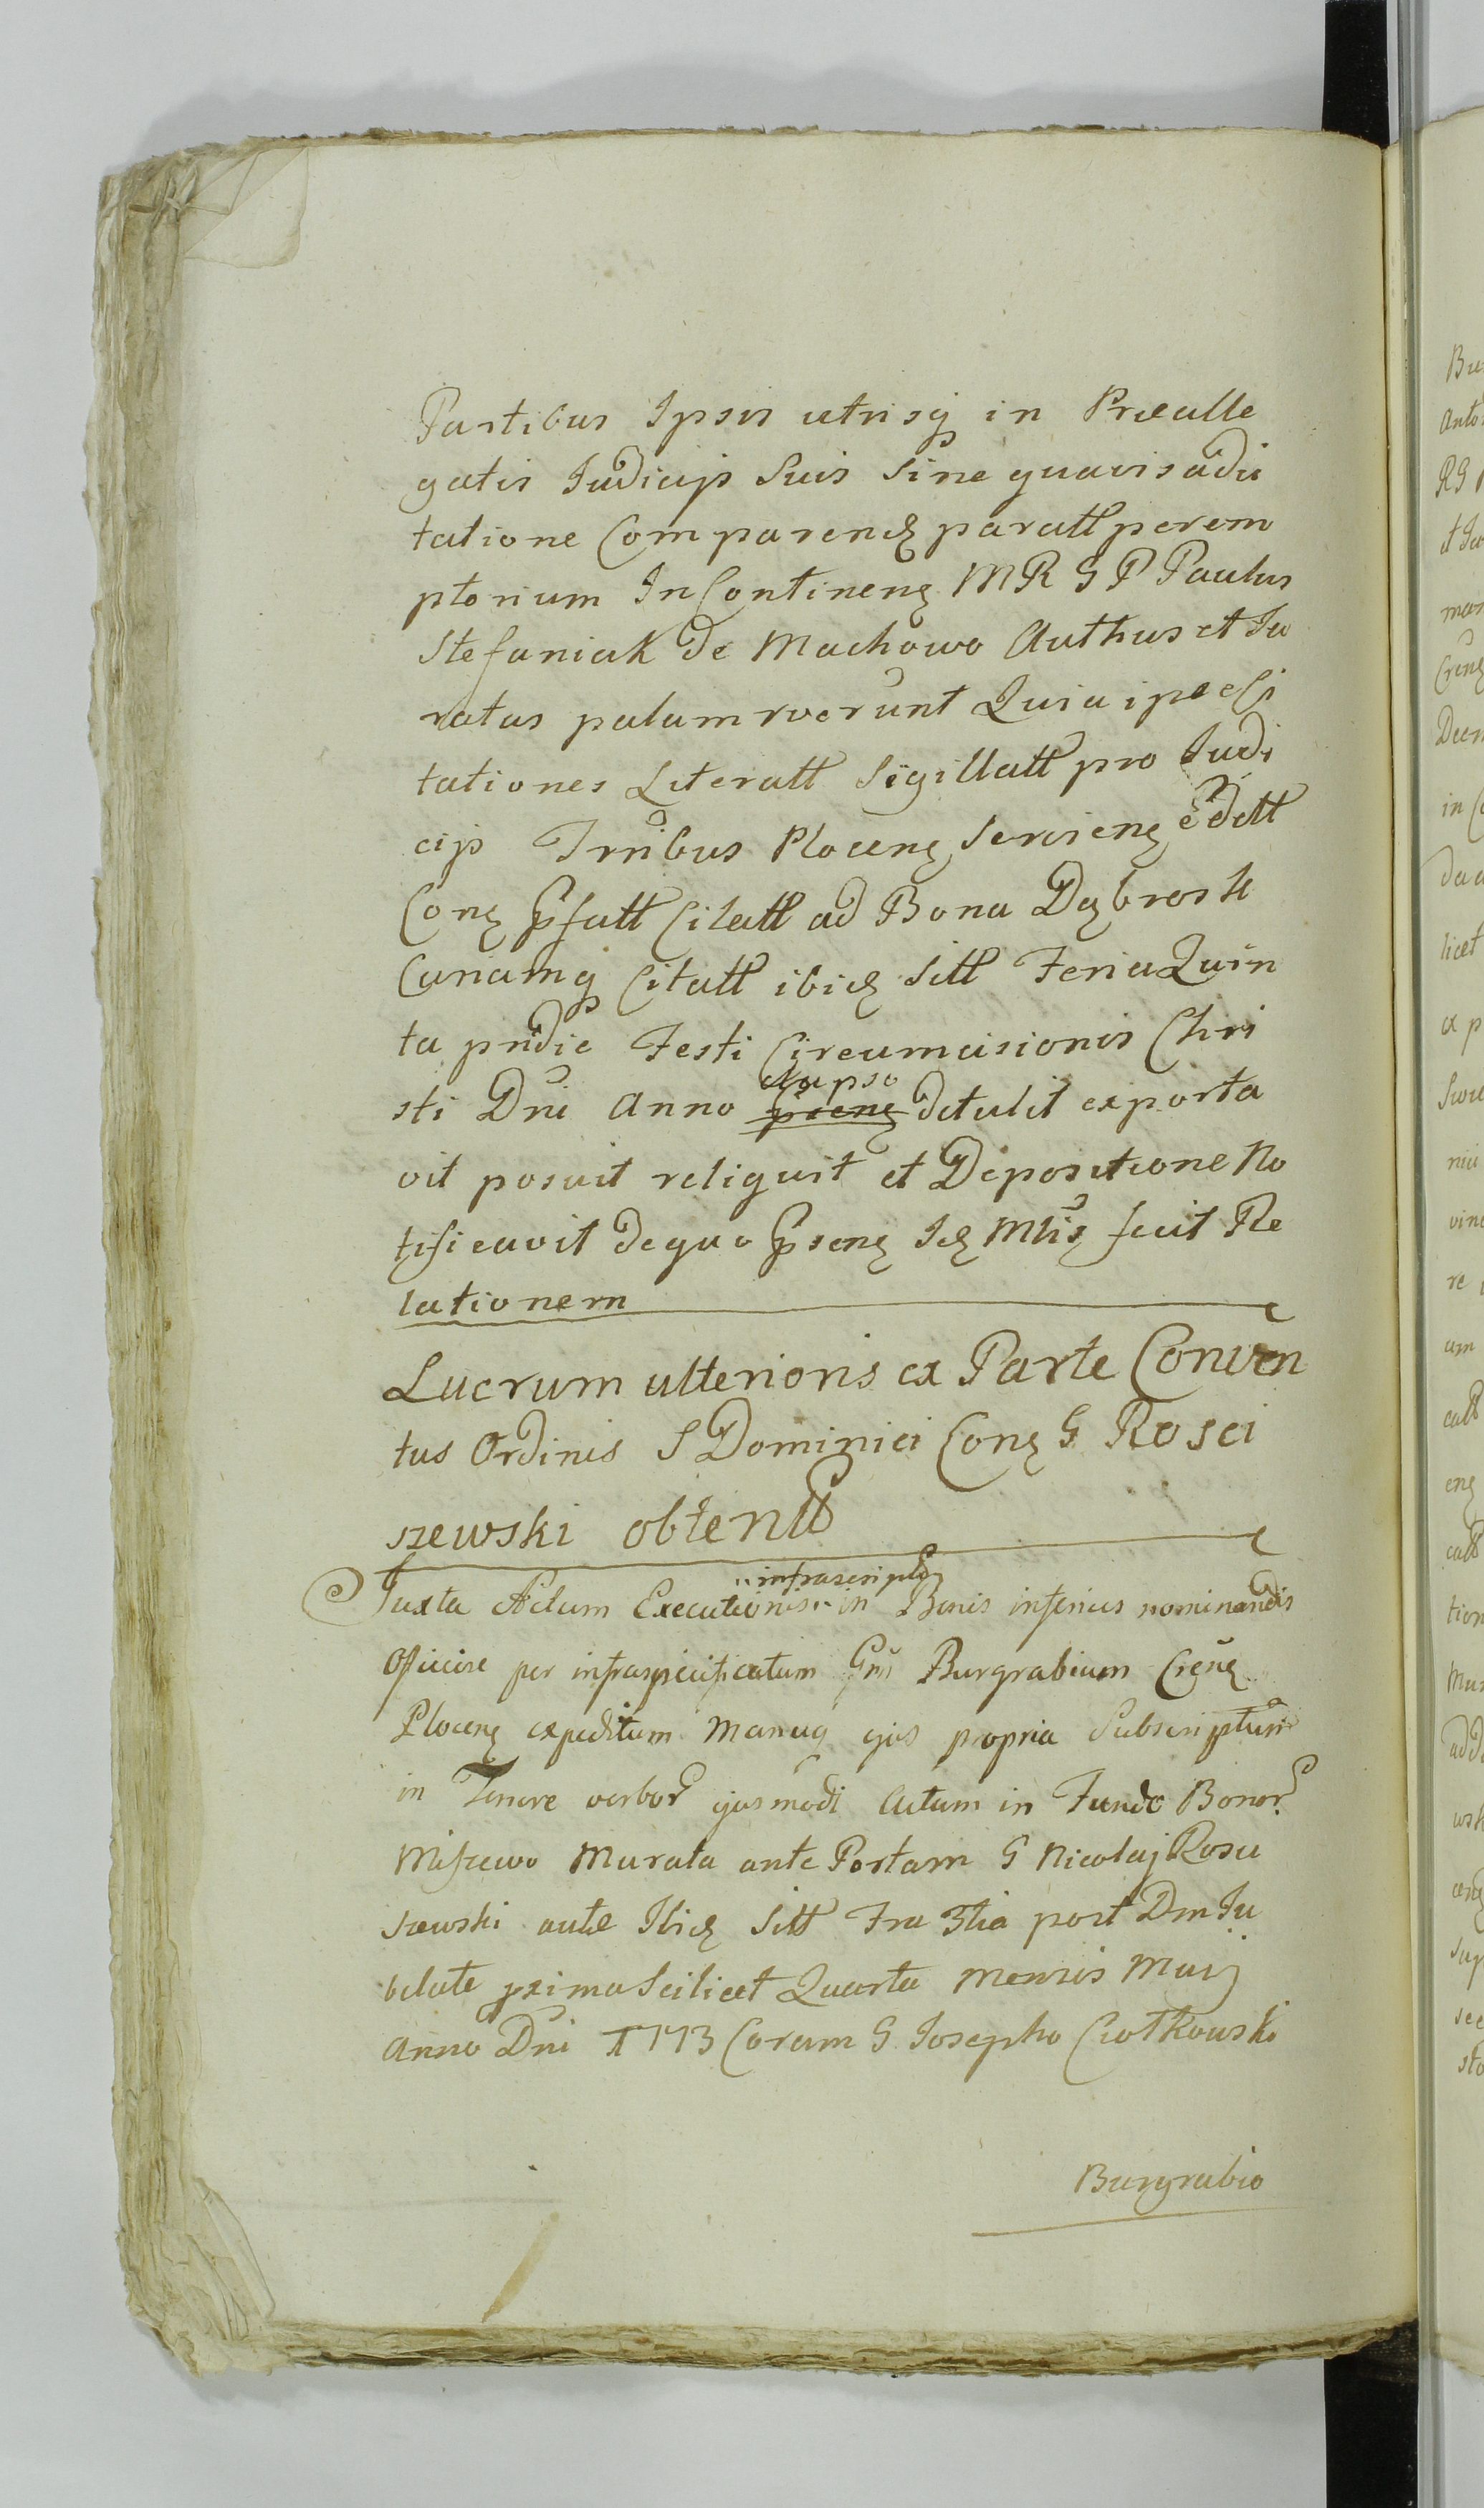 Partibus Ipsis utrisq in Præalle
gatis Judicijs Suis Sine quavis adci
tatione Comparenđ paratt perem
ptorium In Contineng MR G P Paulus
Stefaniak de Machowo Authus et Ju
ratus palam rverunt Quia ipse Ci
tationes Literatt Sigillatt pro Judi
cijs Trribus Ploceng Serviene edett
Cong Psatt Citatt ad Bona Dąbrosk
Curiamq Citatt ibid Sitt Feria Quin
ta pridie Festi Circumcisionis Chri
sti Dni Anno elapso detulit exporta
vit posuit reliquit et Depositione No
tificavit de quo Pseng Id Mlis fecit Re
lationem
Lucrum ulterioris ex Parte Conven
tus Ordinis S Dominici Cong G Rosci
szewski obtentt
Juxta Actum Executionis infrascripto in Bonis inferius nominandis
Officiose per infraspecificatum Gnu Burgrabium Creng
Ploceng expeditum Manuq ejus propria Subscriptum
in Tenore verbor ejusmodi Actum in Fundo Bonor
Miszewo Murata ante Portam G Nicolaj Rosci
szewski aute Ibid Sitt Fra 3tia post Dm Ju
bilate prima Scilicet Quarta Mensis Maij
Anno Dni 1773 Coram G Josepho Ciotkowski
Burgrabio